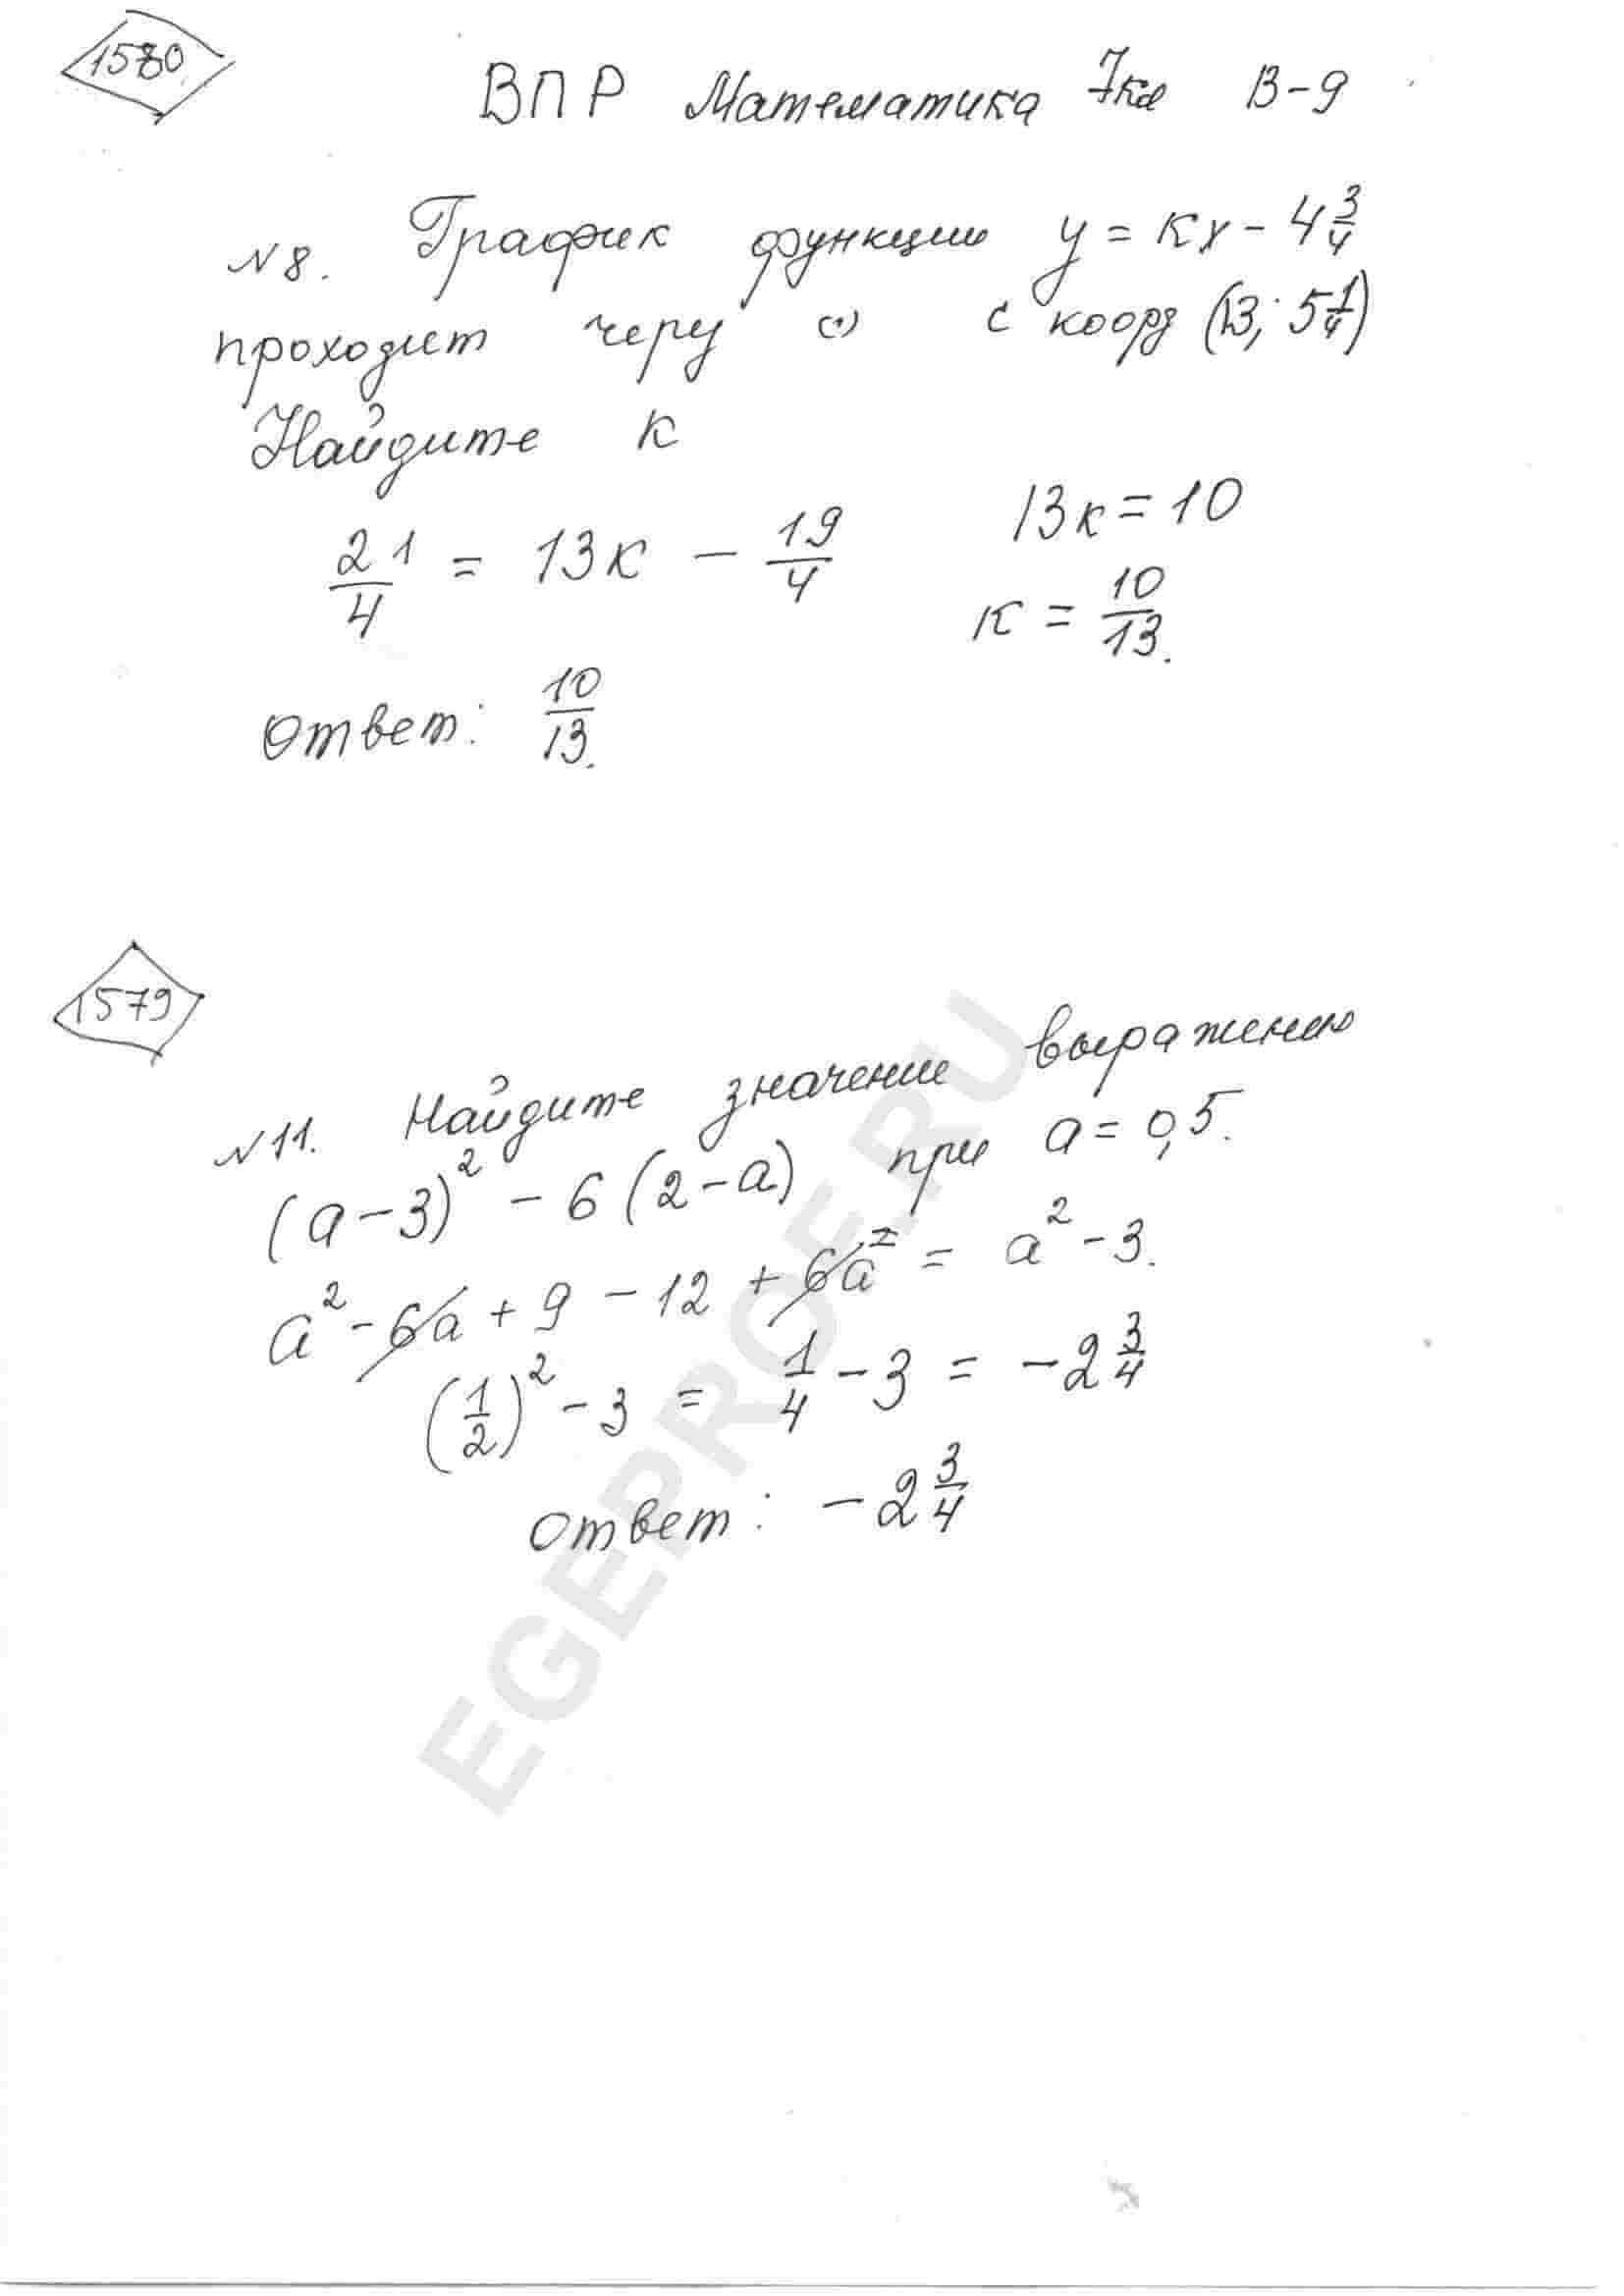 1580
ВПР Математика 7кл В-9
№8. График функции y = кx - 4 3/4
проходит через (·) с коорд (13; 5 1/4)
Найдите к
21/4 = 13к - 19/4 13к = 10
к = 10/13.
Ответ: 10/13.
1579
№11. Найдите значение выражения
(a-3)² - 6(2-a) при a = 0,5.
a² - 6a + 9 - 12 + 6a = a² - 3.
(1/2)² - 3 = 1/4 - 3 = -2 3/4
Ответ: -2 3/4
EGEPROF.RU